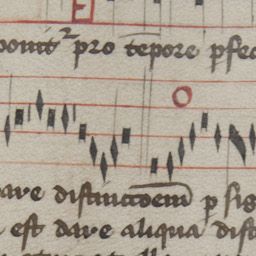 E
ponitr pro tēpore pfec
O
are distinctōem p sig
est dare aliqua dist